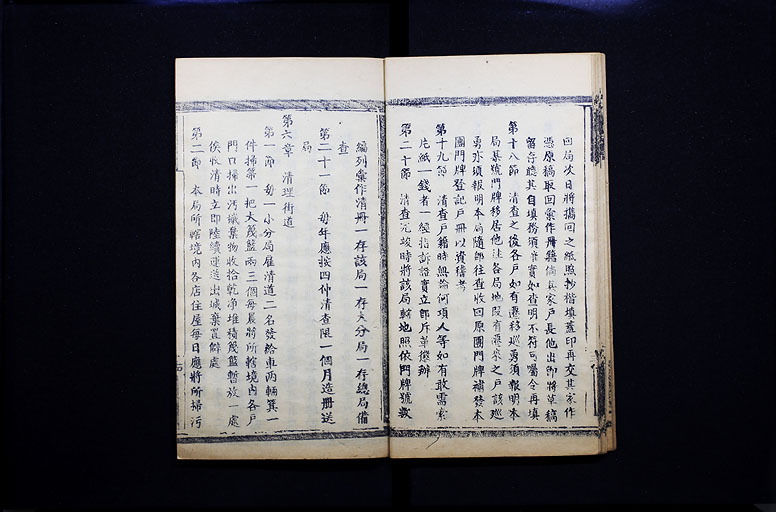 回局次日將攜回之紙照抄楷填蓋印再交其家作
憑原稿取回彙作冊籍倘其家戶長他出即將草稿
留存聽其自填務須確實如查明不符可囑令再填
第十八節 清查之後各戶如有遷移巡勇須報明本
局其號門牌移居他往各局地段有遷來之戶該巡
勇亦須報明本局隨即往查收回原團門牌補發本
團門牌登記戶冊以資稽考
第十九節 清查戶籍時無論何項人等如有敢需索
片紙一錢者一經指訴證實立即斥革懲辦
第二十節 清查完竣時將該局轄地照依門牌號數
編列彙作清冊一存該局一存大分局一存總局備
查
第二十一節 每年應按四仲清查限一個月造冊送
局
第六章 清理街道
第一節 每一小分局雇清道二名發給車兩輛箕一
件掃箒一把大篾籃兩三個每晨將所轄境內各戶
門口掃出污穢棄物收拾乾净堆積篾籃暫放一處
俟收清時立即陸續運送出城棄置僻處
第二節 本局所轄境內各店住屋每日應將所掃污